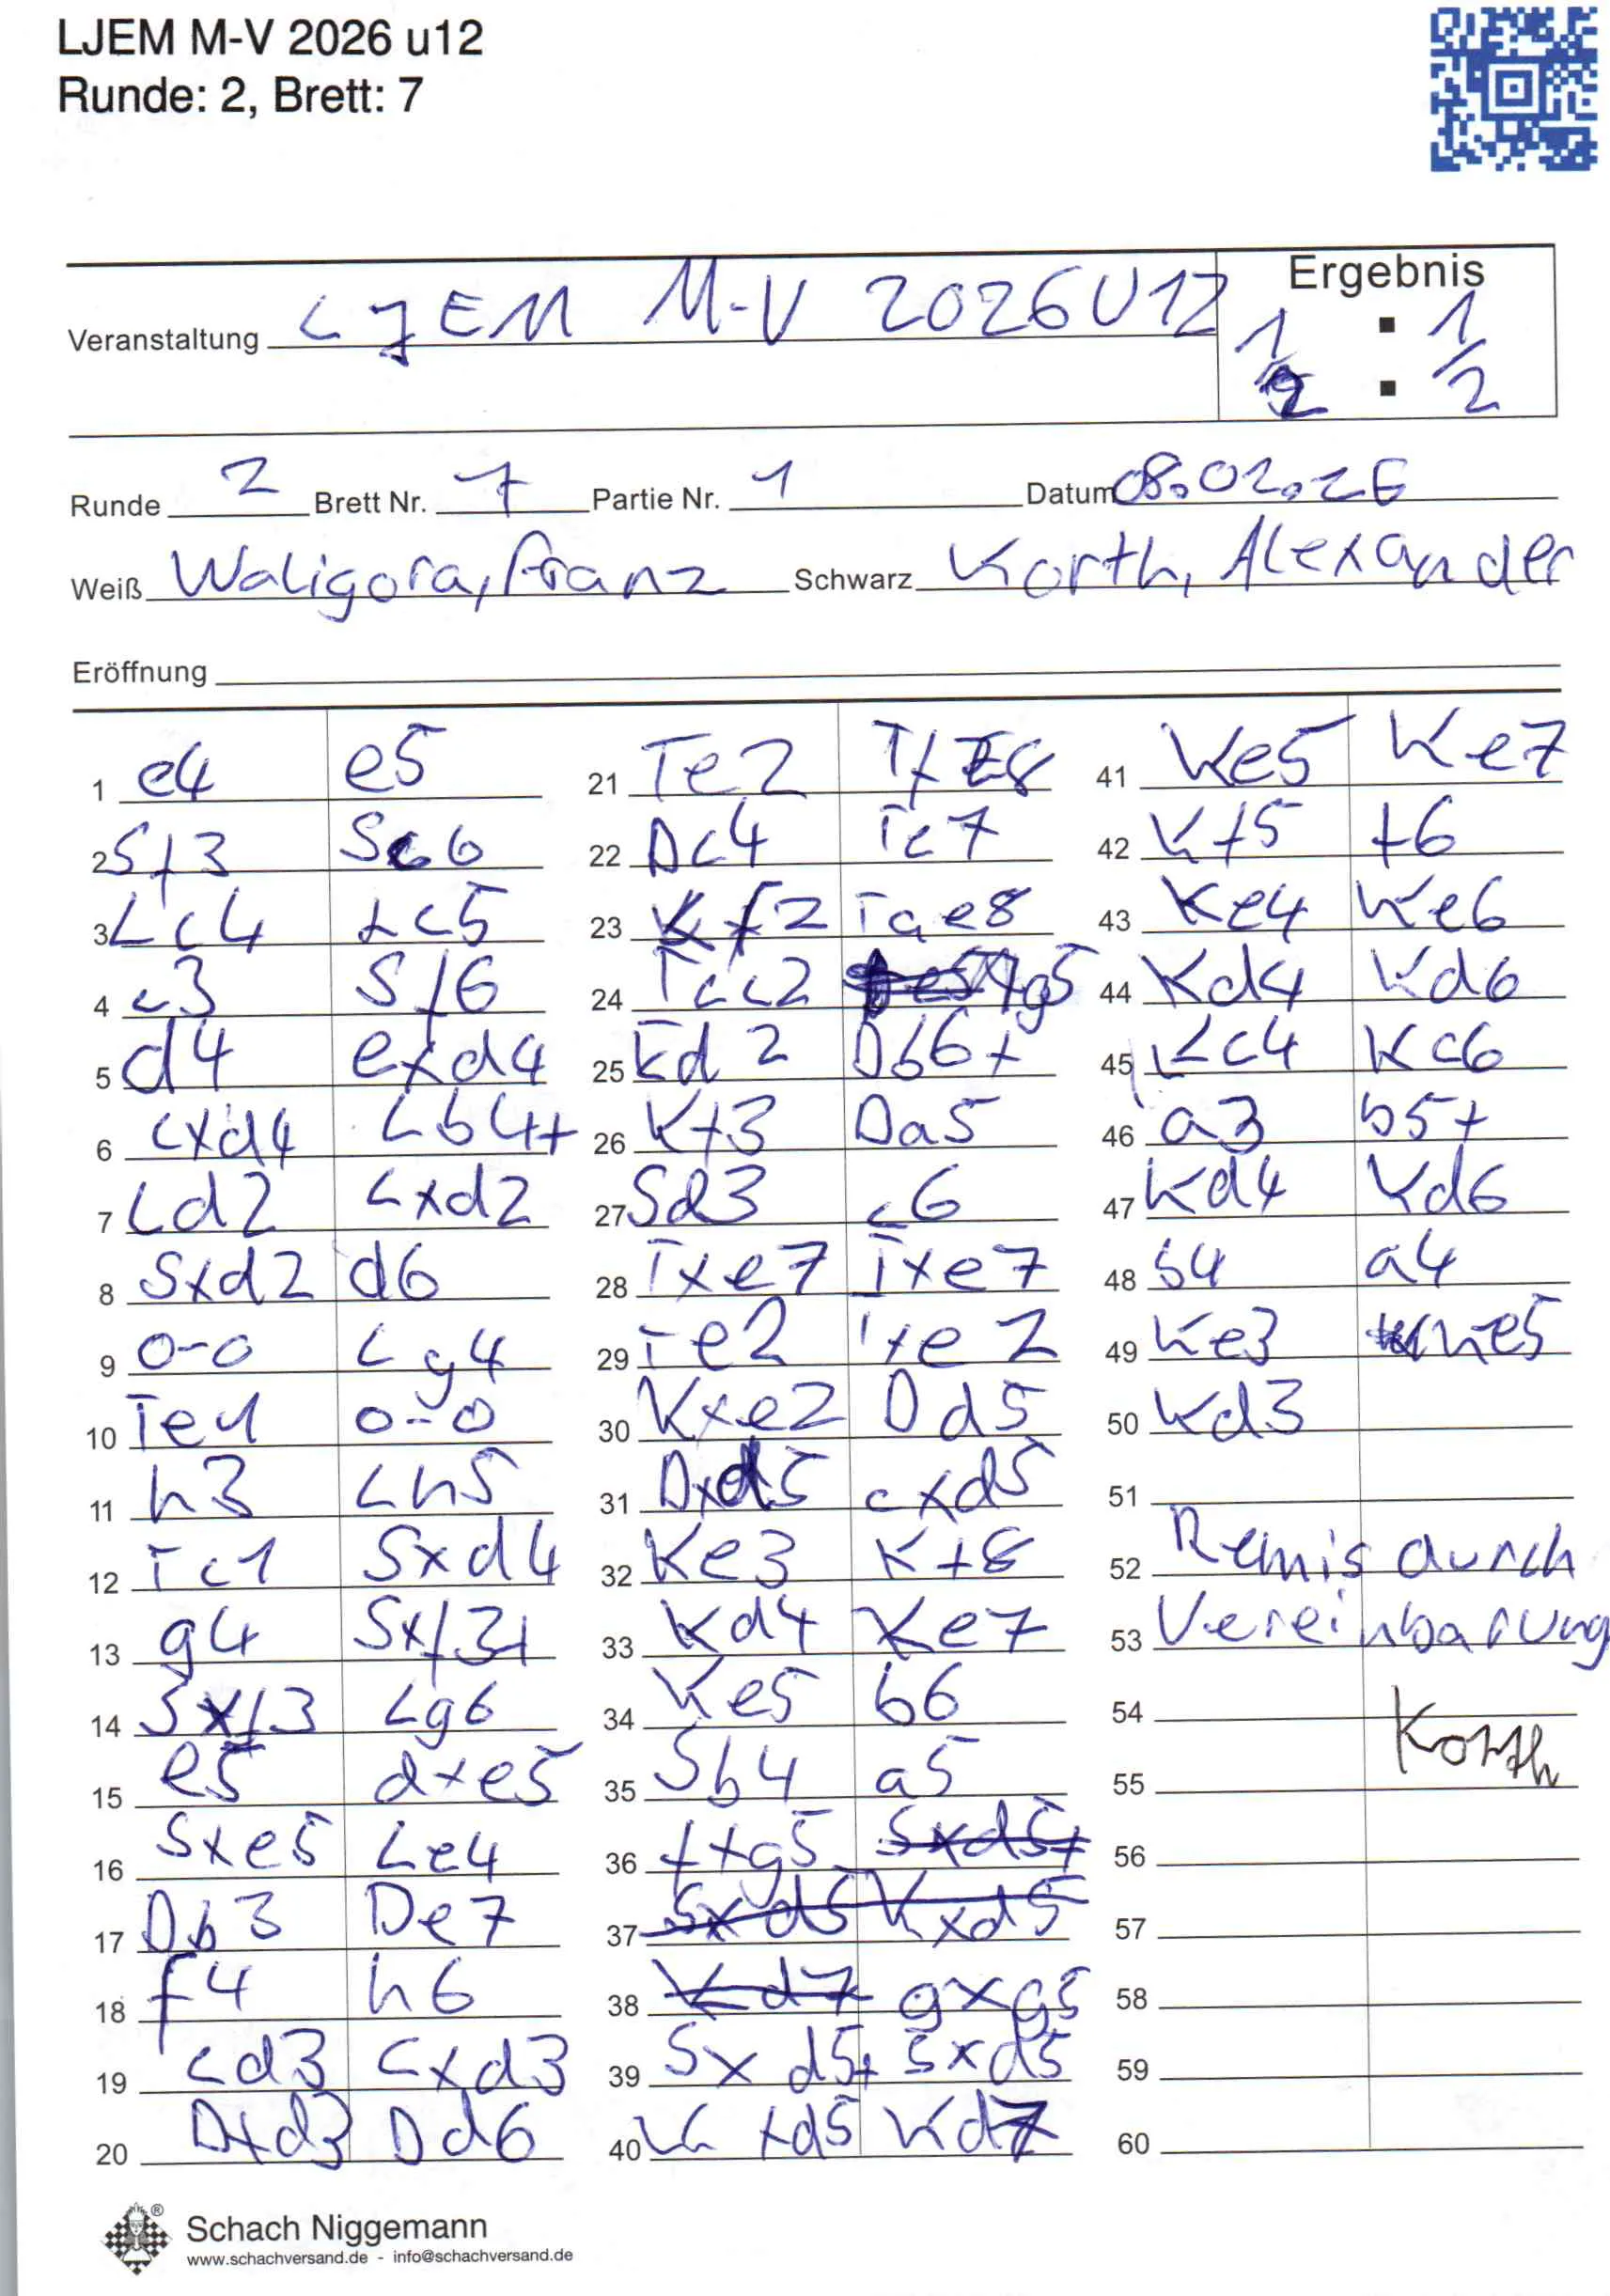 LJEM M-V 2026 u12
Runde: 2, Brett: 7
Ergebnis
Veranstaltung LJEM M-V 2026 U12 1 : 1
2 : 2
Runde 2 Brett Nr. 7 Partie Nr. 1 Datum 08.02.26
Weiß Waligora, Franz Schwarz Korth, Alexander
Eröffnung
1 e4 e5
2 Sf3 Sc6
3 Lc4 Lc5
4 c3 Sf6
5 d4 exd4
6 cxd4 Lb4+
7 Ld2 Lxd2
8 Sxd2 d6
9 0-0 Lg4
10 Te1 0-0
11 h3 Lh5
12 Tc1 Sxd4
13 g4 Sxf3+
14 Sxf3 Lg6
15 e5 dxe5
16 Sxe5 Le4
17 Db3 De7
18 f4 h6
19 Ld3 Lxd3
20 Dxd3 Dd6
21 Te2 TfE8
22 Dc4 Te7
23 Kf2 Tae8
24 Tcc2 g5
25 Ed2 Db6+
26 Kf3 Da5
27 Sd3 c6
28 Txe7 Txe7
29 Te2 Txe2
30 Kxe2 Dd5
31 Dxd5 cxd5
32 Ke3 Kf8
33 Kd4 Ke7
34 Ke5 b6
35 Sb4 a5
36 fxg5 Sxd5+
37 Sxd5 Kxd5
38 Kd7 gxg5
39 Sxd5+ Sxd5
40 Kxd5 Kd7
41 Ke5 Ke7
42 Kf5 f6
43 Ke4 Ke6
44 Kd4 Kd6
45 Kc4 Kc6
46 a3 b5+
47 Kd4 Kd6
48 b4 a4
49 Ke3 Ke5
50 Kd3
51
52 Remis durch
53 Vereinbarung
54
Korth
55
56
57
58
59
60
Schach Niggemann
www.schachversand.de - info@schachversand.de